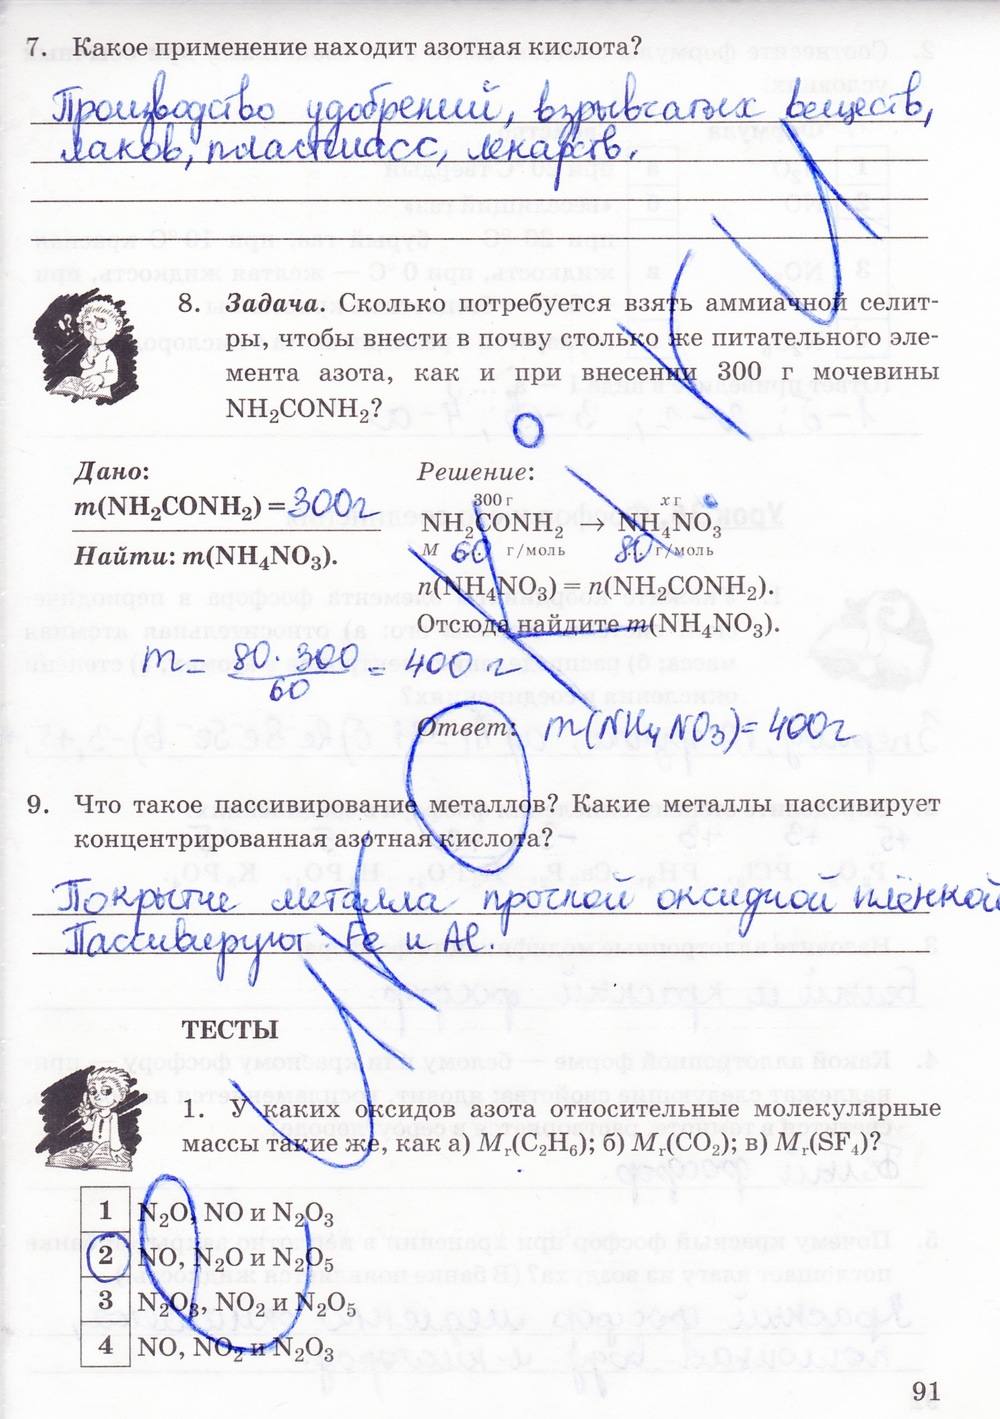 7. Какое применение находит азотная кислота?
Производство удобрений, взрывчатых веществ,
лаков, пластмасс, лекарств.
8. Задача. Сколько потребуется взять аммиачной селит-
ры, чтобы внести в почву столько же питательного эле-
мента азота, как и при внесении 300 г мочевины
NH₂CONH₂?
Дано:
m(NH₂CONH₂) = 300г
Найти: m(NH₄NO₃).
Решение:
300 г x г
NH₂CONH₂ → NH₄NO₃
M 60 г/моль 80 г/моль
n(NH₄NO₃) = n(NH₂CONH₂).
Отсюда найдите m(NH₄NO₃).
m = 80·300/60 = 400 г
Ответ: m(NH₄NO₃)=400г
9. Что такое пассивирование металлов? Какие металлы пассивирует
концентрированная азотная кислота?
Покрытие металла прочной оксидной плёнкой
Пассивируют Fe и Al
ТЕСТЫ
1. У каких оксидов азота относительные молекулярные
массы такие же, как а) Mr(C₂H₆); б) Mr(CO₂); в) Mr(SF₄)?
1 N₂O, NO и N₂O₃
2 NO, N₂O и N₂O₅
3 N₂O₃, NO₂ и N₂O₅
4 NO, NO₂ и N₂O₃
91